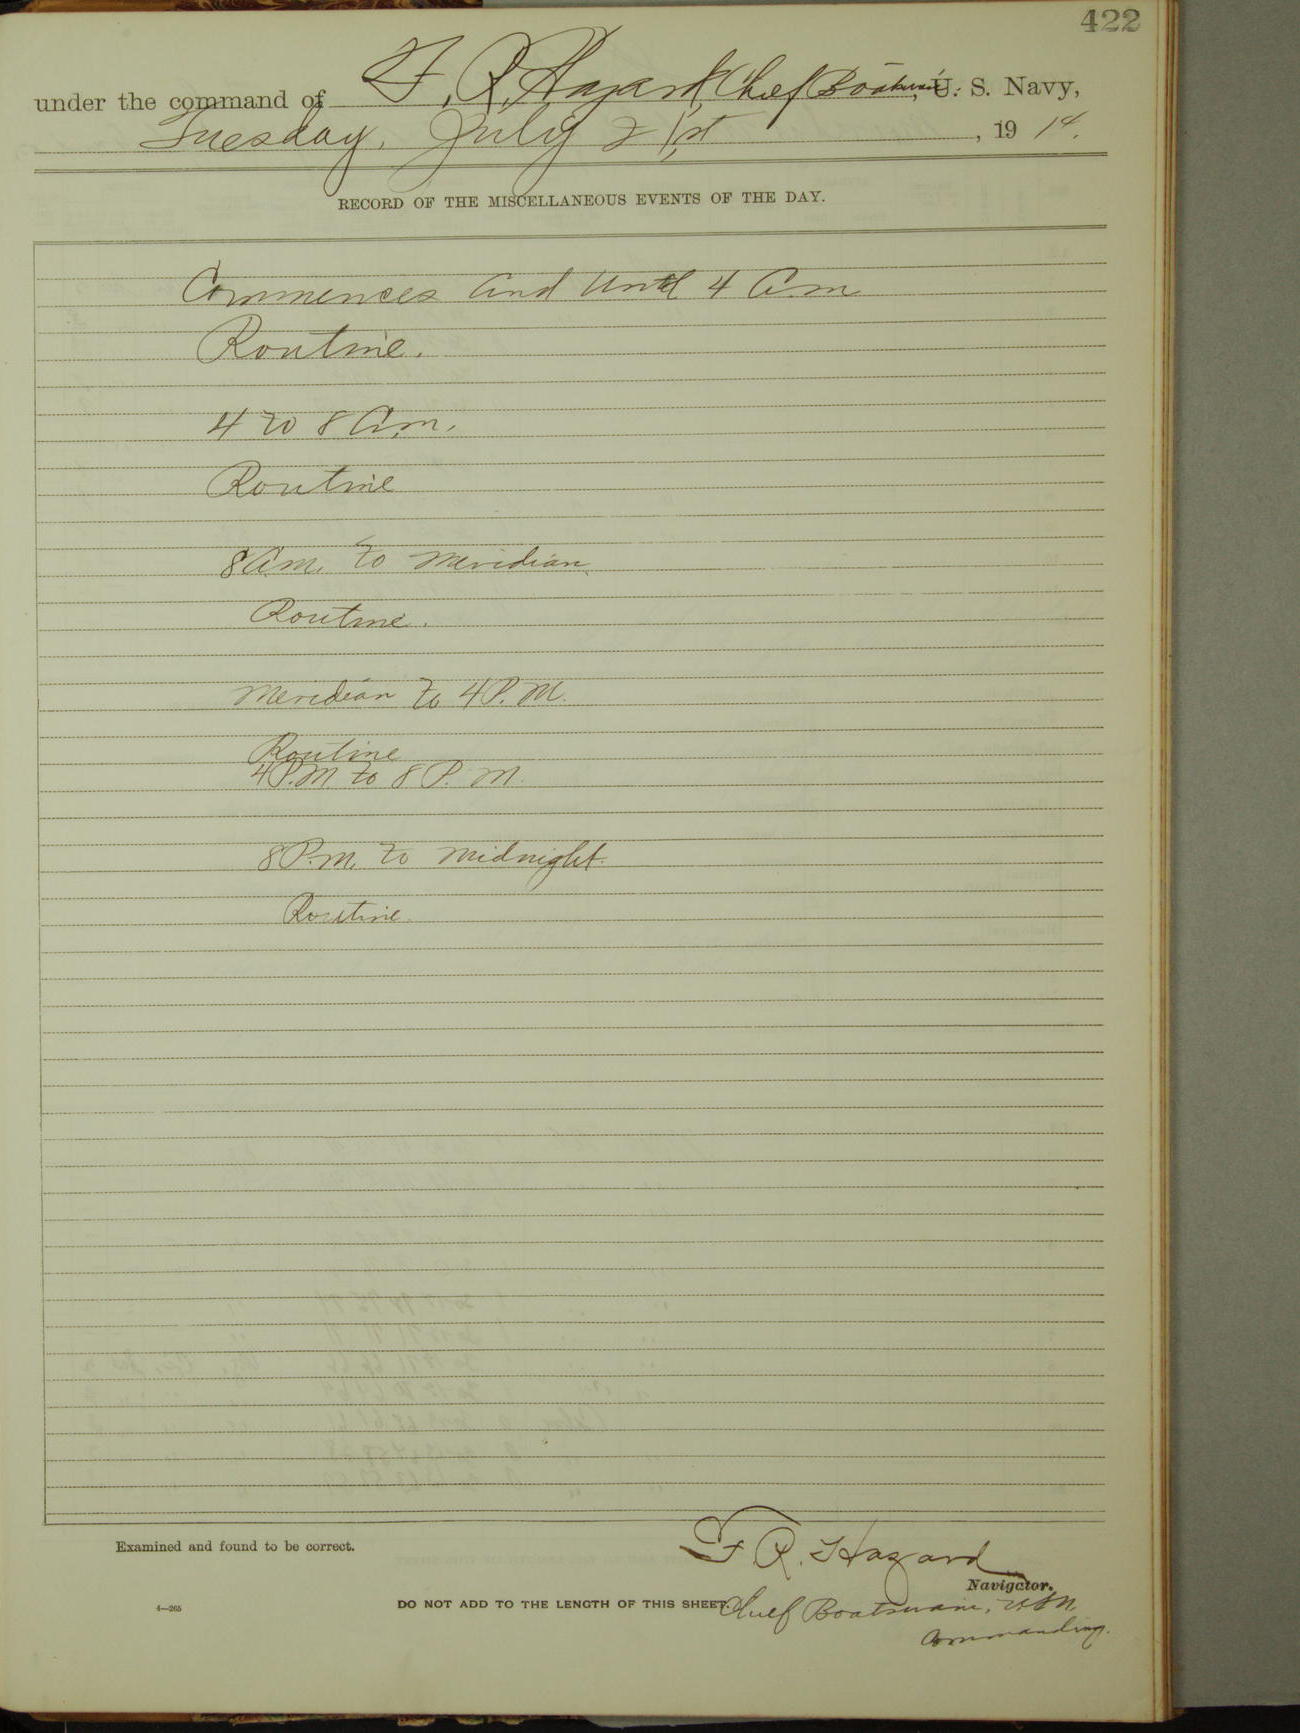 422
under the command of F. R. Hazard, Chief Boatswain, U. S. Navy,
Tuesday, July 21st, 1914.
RECORD OF THE MISCELLANEOUS EVENTS OF THE DAY.
Commences and Until 4 A.m
Routine.
4 to 8 A.m.
Routine
8 A.m. to meridian.
Routine.
Meridian to 4 P. M.
Routine
4 P.M to 8 P. M.
8 P.m. to midnight.
Routine.
F. R. Hazard
Examined and found to be correct.
Navigator.
4—265
DO NOT ADD TO THE LENGTH OF THIS SHEET.
Chief Boatswain, USN,
Commanding.